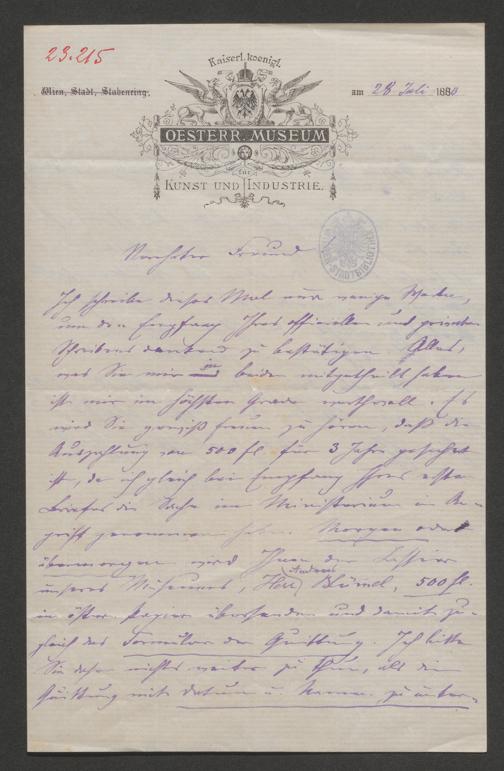 23.215
Kaiserl. koenigl.
Wien, Stadt, Stubenring.
am 28 Juli 1880
OESTERR. MUSEUM
für
KUNST UND INDUSTRIE.
Verehrter Freund
Ich schreibe dieses Mal nur wenige Worte,
um den Empfang Ihres officiellen und privaten
Schreibens dankend zu bestätigen. Alles,
was Sie mir in beiden mitgetheilt haben
ist mir im höchsten Grade werthvoll. Es
wird Sie gewiß freuen zu hören, daß die
Auszahlung von 500 fl. für 3 Jahre gesichert
ist, da ich gleich bei Empfang Ihres ersten
Briefes die Sache im Ministerium in An-
griff genommen habe. Morgen oder
übermorgen wird Ihnen der Cassier
unseres Museums, Herr Blümel, 500 fl.
in österr. Papier übersenden und damit zu-
gleich das Formular der Quittung. Ich bitte
Sie daher nichts weiter zu thun, als die
Quittung mit Datum u. Namen zu unter-